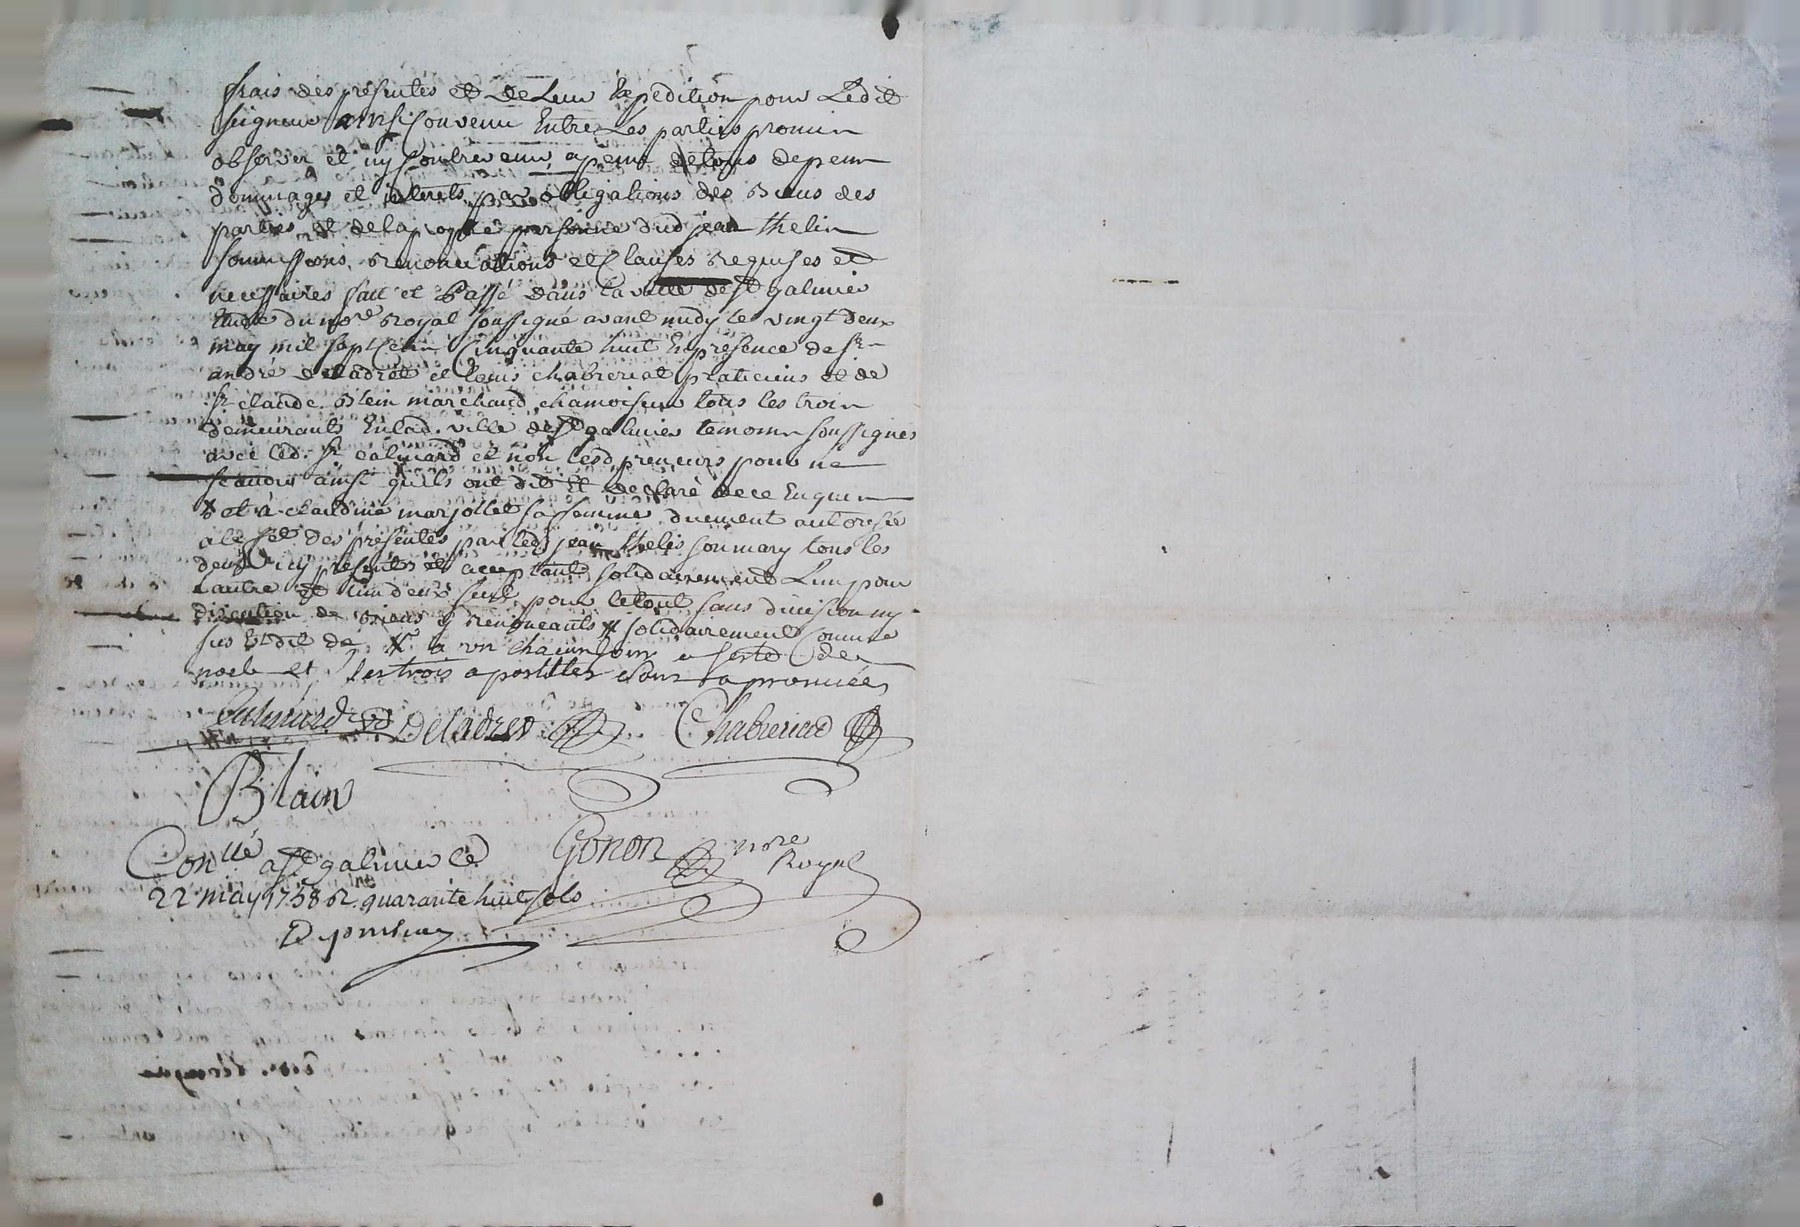 frais des presentes et de Leur Expedition pour Ledit
seigneur ainsi Convenu Entre Les parties promin
observer et ny Contrevenir a peine de tous depens
dommages et interets par obligations des Biens des
parties et de la propre personne dud jean thelin
soumissions renonciations et Clauses requises et
necessaires fait et Passé dans la ville de st galmier
Etude du nore Royal soussigné avant midy le vingt deux
may mil sept Cent Cinquante huit En presence de sr
andré Deladret et Louis chabreriat praticiens et de
sr claude Blein marchand chamoiseur tous les trois
demeurants En lad. ville de st galmier temoins soussignés
avec led. sr calmard et non lesd preneurs pour ne
scavoir ainsi qu'ils ont dit et declaré de ce Enquis
et a claudine marjollet sa femme duement autorisée
a leffet des presentes par led jean thelis son mary tous les
deux icy presents et acceptants solidairement L'un pour
L'autre et l'un deux seul pour le tout sans division ny
discution de Biens y renonceants solidairement Comme
sus Est dit de a un chacun jour et feste de
noel et les trois apostilles sont approuvées
Calmard Deladret Chabreriad
Blain
Conllé a st galmier le Gonon nore
22 may 1758 R quarante huit sols Royal